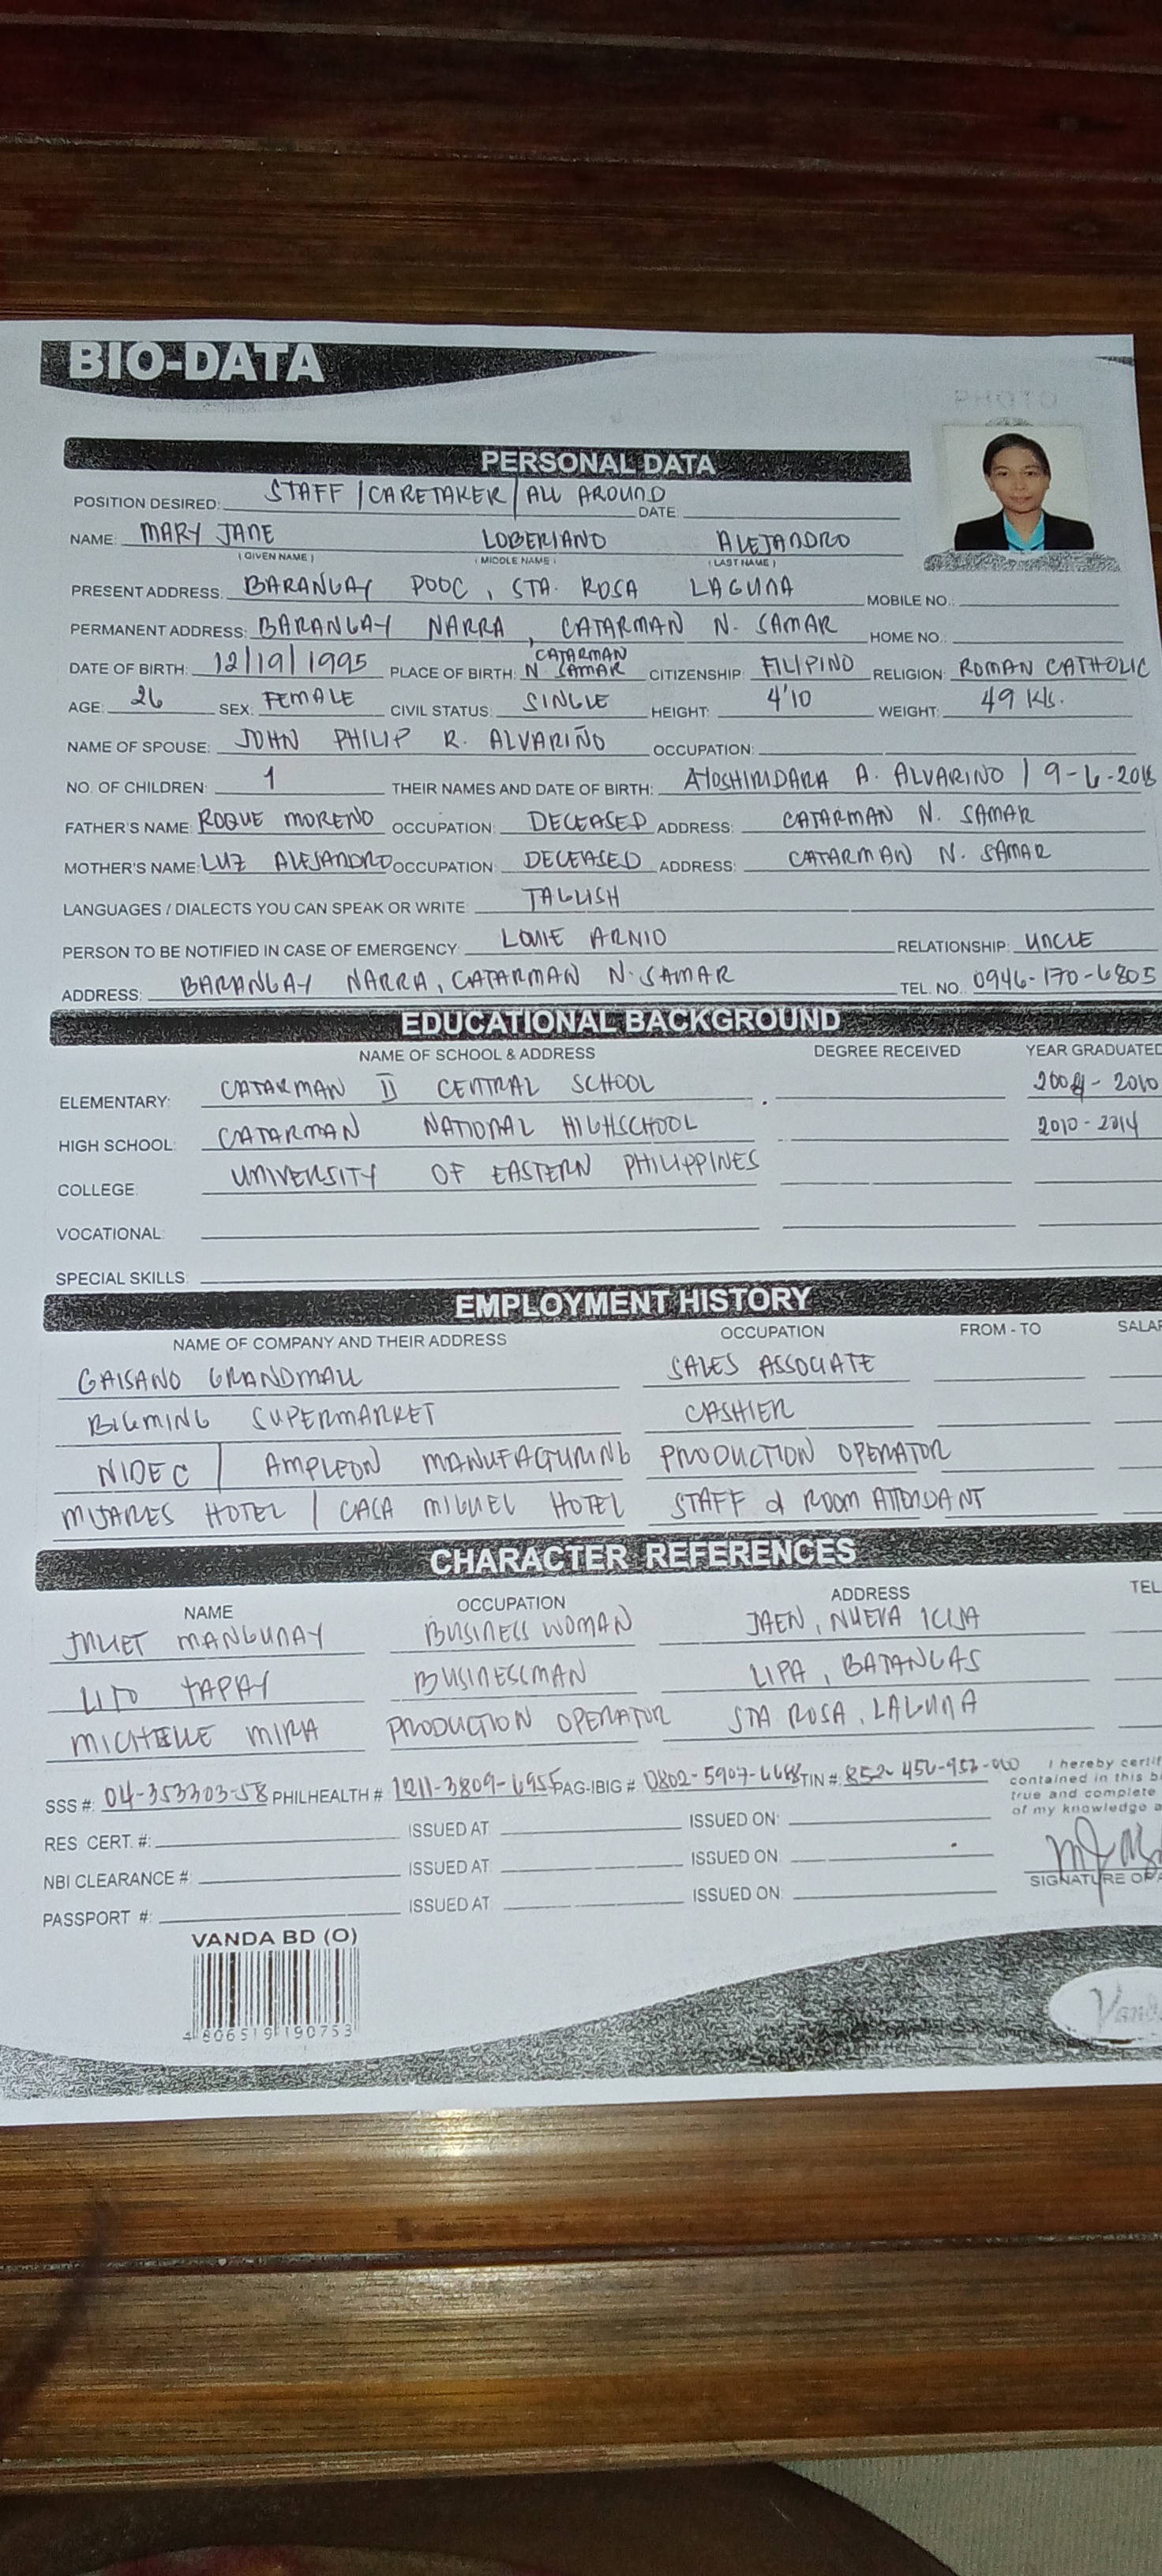 BIO-DATA
PHOTO
PERSONAL DATA
POSITION DESIRED: STAFF / CARETAKER / ALL AROUND DATE
NAME: MARY JANE LOBERIANO ALEJANDRO
(GIVEN NAME) (MIDDLE NAME) (LAST NAME)
PRESENT ADDRESS: BARANGAY POOC, STA. ROSA LAGUNA MOBILE NO.:
PERMANENT ADDRESS: BARANGAY NARRA, CATARMAN N. SAMAR HOME NO.:
DATE OF BIRTH: 12/19/1995 PLACE OF BIRTH: CATARMAN N. SAMAR CITIZENSHIP: FILIPINO RELIGION: ROMAN CATHOLIC
AGE: 26 SEX: FEMALE CIVIL STATUS: SINGLE HEIGHT: 4'10 WEIGHT: 49 KG.
NAME OF SPOUSE: JOHN PHILIP R. ALVARIÑO OCCUPATION:
NO. OF CHILDREN: 1 THEIR NAMES AND DATE OF BIRTH: A. ALVARINO / 9-6-2018
FATHER'S NAME: ROQUE MORENO OCCUPATION: DECEASED ADDRESS: CATARMAN N. SAMAR
MOTHER'S NAME: LUZ ALEJANDRO OCCUPATION: DECEASED ADDRESS: CATARMAN N. SAMAR
LANGUAGES / DIALECTS YOU CAN SPEAK OR WRITE: TAGLISH
PERSON TO BE NOTIFIED IN CASE OF EMERGENCY: LOUIE ARNIO RELATIONSHIP: UNCLE
ADDRESS: BARANGAY NARRA, CATARMAN N. SAMAR TEL. NO. 0946-170-6805
EDUCATIONAL BACKGROUND
NAME OF SCHOOL & ADDRESS DEGREE RECEIVED YEAR GRADUATED
ELEMENTARY: CATARMAN II CENTRAL SCHOOL - 2010
HIGH SCHOOL: CATARMAN NATIONAL HIGHSCHOOL 2010-2014
COLLEGE: UNIVERSITY OF EASTERN PHILIPPINES
VOCATIONAL:
SPECIAL SKILLS:
EMPLOYMENT HISTORY
NAME OF COMPANY AND THEIR ADDRESS OCCUPATION FROM - TO SALAR
GAISANO GRANDMALL SALES ASSOCIATE
BIGMING SUPERMARKET CASHIER
NIDEC / AMPLEON MANUFACTURING PRODUCTION OPERATOR
MIJARES HOTEL / CASA MIGUEL HOTEL STAFF & ROOM ATTENDANT
CHARACTER REFERENCES
NAME OCCUPATION ADDRESS TEL
JULIET MANGUNAY BUSINESS WOMAN JAEN, NUEVA ICIJA
LITO TAPAY BUSINESSMAN LIPA, BATANGAS
MICHELLE MIRA PRODUCTION OPERATOR STA ROSA, LAGUNA
SSS #: 04-353303-58 PHILHEALTH #: 1211-3809-6955 PAG-IBIG #: 0802-5907-6668 TIN #: 852-456-953-000 I hereby certif
contained in this b
true and complete
of my knowledge a
RES. CERT. #: ISSUED AT: ISSUED ON:
NBI CLEARANCE #: ISSUED AT: ISSUED ON:
PASSPORT #: ISSUED AT: ISSUED ON:
SIGNATURE OF A
VANDA BD (O)
4 806519 190753
Vand